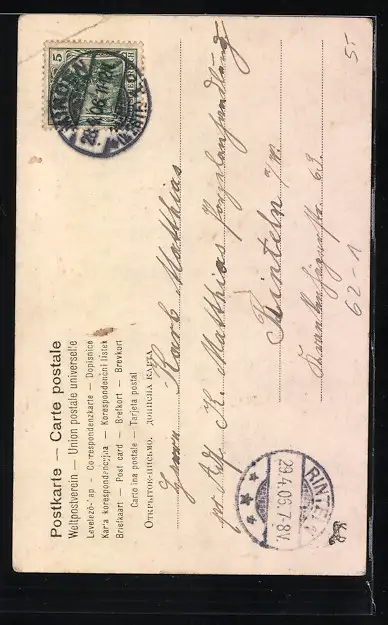 Postkarte — Carte postale
Weltpostverein — Union postale universelle
Levelező-Lap — Correspondenzkarte — Dopisnice
Karta korespondencyjna — Korespondenční lístek
Briefkaart — Post card — Brefkort — Brevkort
Cartolina postale — Tarjeta postal
Открытое письмо. Дописна карта
5
Herrn Karl Matthias
pr. Adr. H. Matthias
Rinteln a/W.
63.
RINTELN
29.4.05.7-8V.
5-
62-1